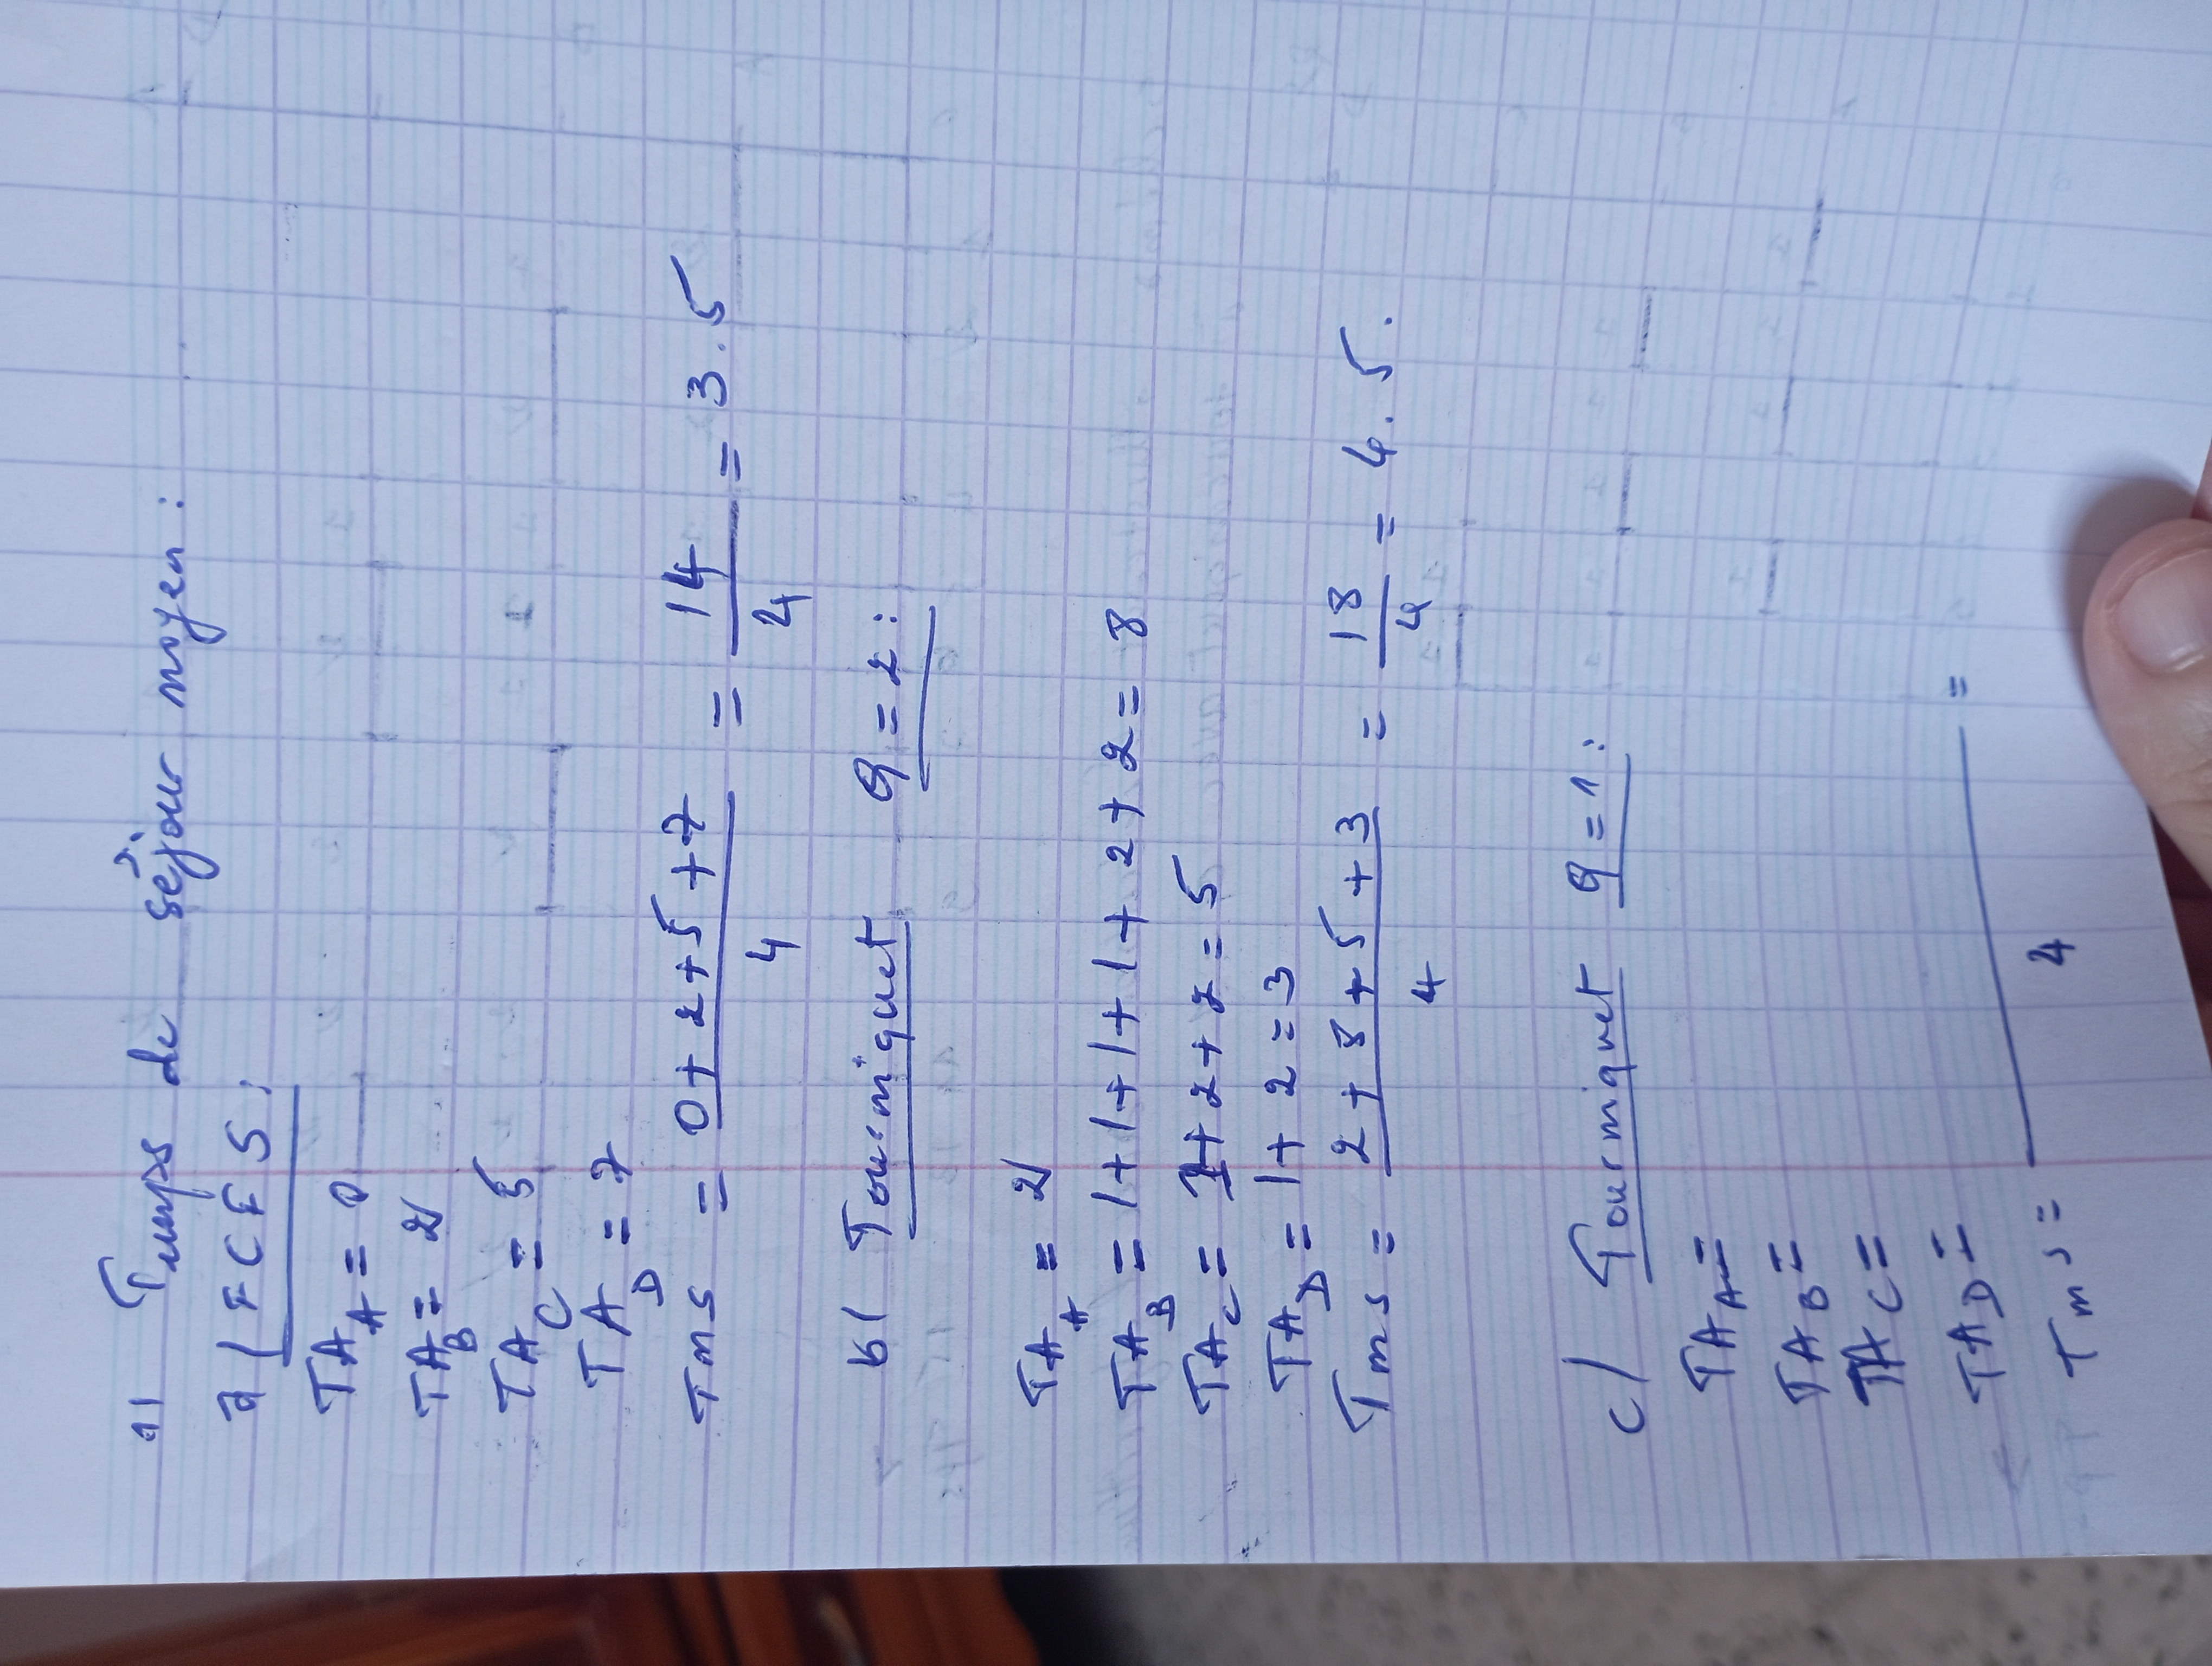 1) Temps de séjour moyen :
a) FCFS :
TA_A = 0
TA_B = 2
TA_C = 5
TA_D = 7
Tms = (0+2+5+7)/4 = 14/4 = 3.5
b) Tourniquet Q = 2 :
TA_A = 2
TA_B = 1+1+1+1+2+2 = 8
TA_C = 1+2+2 = 5
TA_D = 1+2 = 3
Tms = (2+8+5+3)/4 = 18/4 = 4.5.
c) Tourniquet Q = 1 :
TA_A =
TA_B =
TA_C =
TA_D =
Tms = /4 =